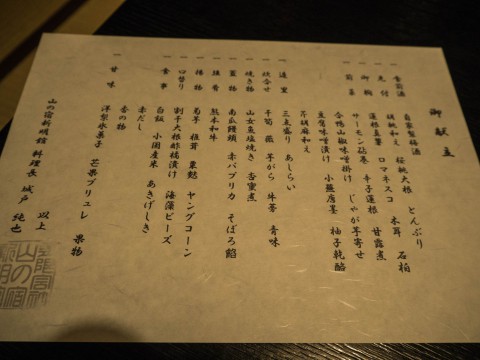 御献立
一 食前酒 自家製梅酒
一 先付 胡麻和え 桜桃大根 とんぶり
一 御椀 蓮根真薯 ロマネスコ 木耳 石柏
一 前菜 サーモン砧巻 辛子蓮根 甘露煮
合鴨山椒味噌掛け じゃが芋寄せ
豆腐味噌漬け 小蕪唐墨 柚子乾酪
芹胡麻和え
一 造里 三点盛り あしらい
一 炊合せ 干筍 蕗 芋がら 牛蒡 青味
一 焼き物 山女魚塩焼き 杏蜜煮
一 蓋物 南瓜饅頭 赤パプリカ そぼろ餡
一 強肴 熊本和牛
一 揚物 菊芋 椎茸 粟麩 ヤングコーン
一 口替り 割干大根酢橘漬け 海藻ビーズ
一 食事 白飯 小国産米 あきげしき
赤だし
香の物
一 甘味 洋梨氷菓子 芒果ブリュレ 果物
以上
山の宿新明館 料理長 城戸 純也
山の宿